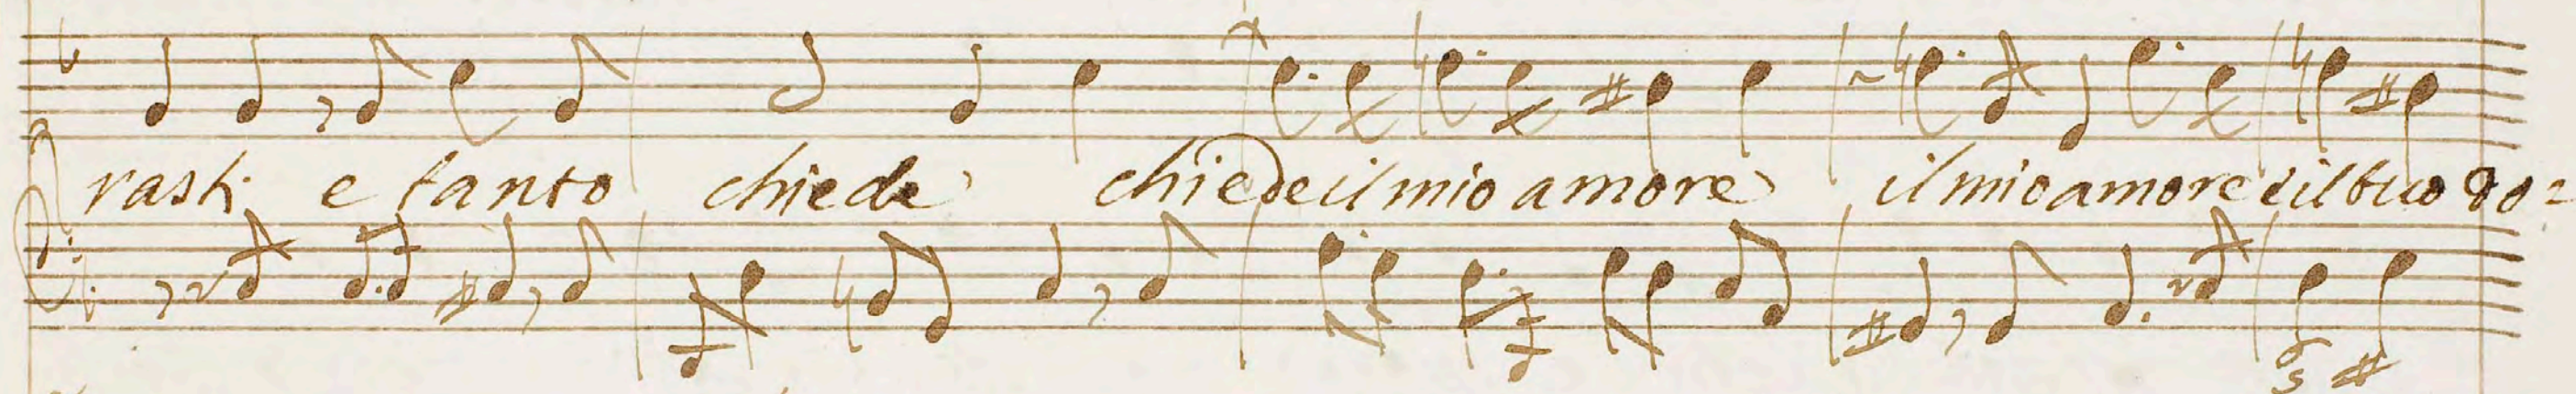 rasti e tanto chiede chiede il mio amore il mio amore e il tuo do=
6
5 #